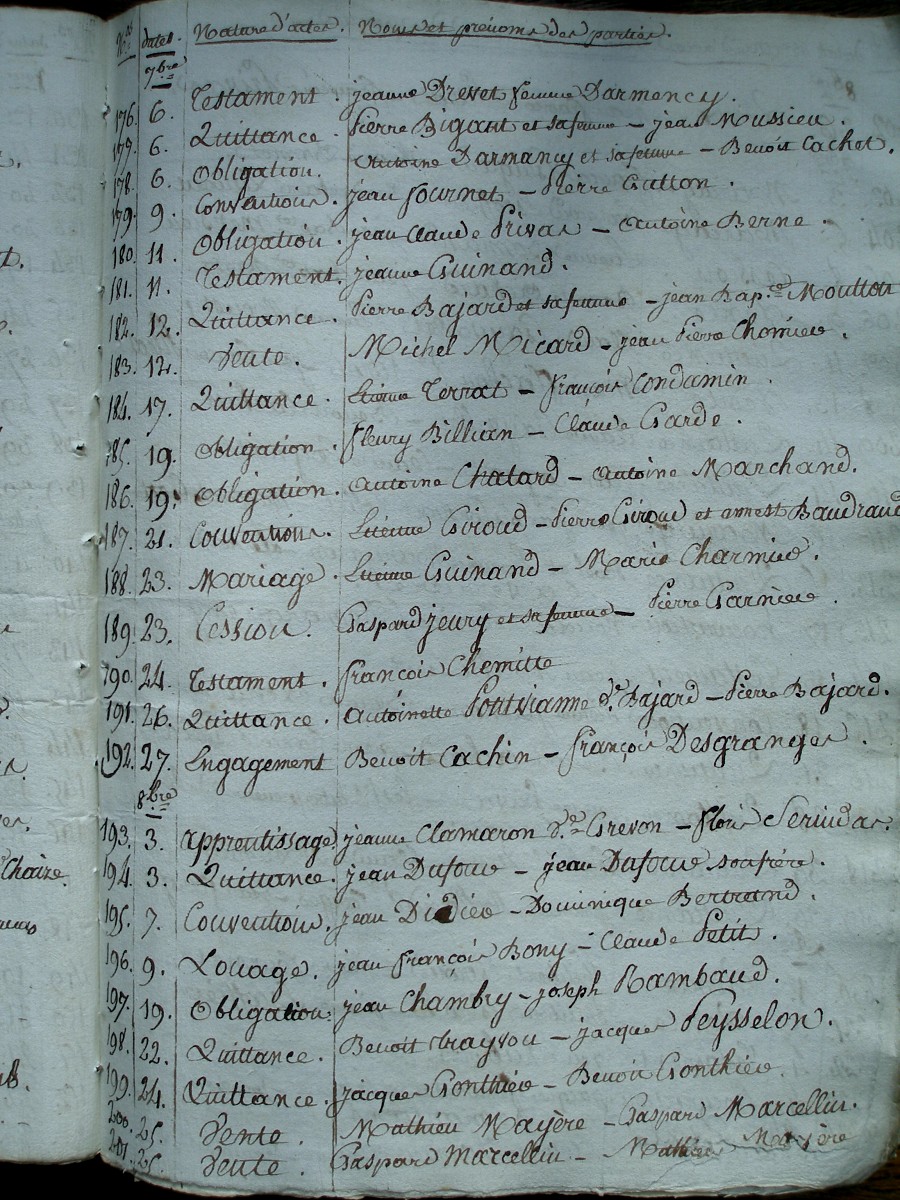 Nos dates. Nature d'actes. Noms et prénoms des parties.
7bre
176. 6. Testament. jeanne Drevet femme Darmency.
177. 6. Quittance. Pierre Bigant et sa femme - jean Mussieu.
178. 6. Obligation. Antoine Darmancy et sa femme - Benoit Cachet.
179. 9. Conventions. jean fournet - Pierre Gatton.
180. 11. Obligation. jean Claude Privas - Antoine Berne.
181. 11. Testament. jeanne Guinand.
182. 12. Quittance. Pierre Bajard et sa femme - jean Bap.te Moutton
183. 12. Vente. Michel Micard - jean Pierre Chomier.
184. 17. Quittance. Etienne Terrat - françois Condamin.
185. 19. Obligation. fleury Billian - Claude Garde.
186. 19. Obligation. Antoine Chatard - Antoine Marchand.
187. 21. Conventions. Etienne Giroud - Pierre Giroud et annest Baudrand
188. 23. Mariage. Etienne Guinand - Marie Charmier.
189. 23. Cession. Gaspard jeury et sa femme - Pierre Garnier.
190. 24. Testament. françois Chemitte
191. 26. Quittance. Antoinette Pontvianne v.e Bajard - Pierre Bajard.
192. 27. Engagement Benoit Cachin - françois Desgranges.
8bre
193. 3. apprentissage. jeanne Clamaron v.e Grevon - floris Serindas.
194. 3. Quittance. jean Dufour - jean Dufour son frère.
195. 7. Convention. jean Didier - Dominique Bertrand.
196. 9. Louage. jean françois Bony - Claude Petit.
197. 19. Obligation jean Chambry - joseph Rambaud.
198. 22. Quittance. Benoit - jacques Peysselon.
199. 24. Quittance. jacques Gonthier - Benoit Gonthier.
200. 25. Vente. Mathieu Mayère - Gaspard Marcellin.
201. 25. Vente. Gaspard Marcellin - Mathieu Mayère
Chaize.